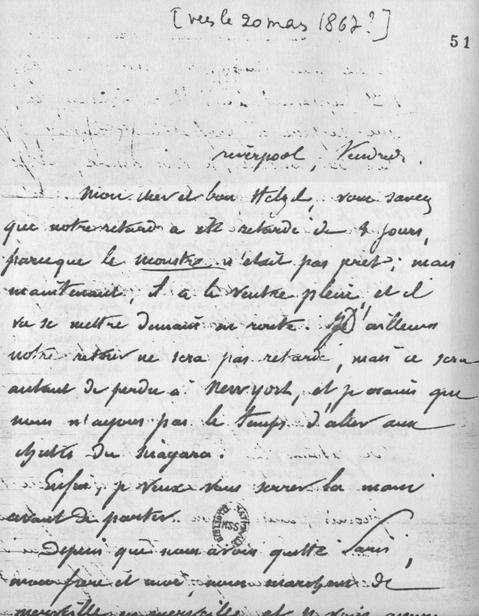 [vers le 20 mars 1867?]
51
Liverpool, Vendredi.
Mon cher et bon Hetzel, vous savez
que notre retard a été retardé de 4 jours,
parceque le monstre n'était pas prêt; mais
maintenant, il a le ventre plein, et il
va se mettre demain en route. D'ailleurs
notre retour ne sera pas retardé, mais ce sera
autant de perdu à Newyork, et je crains que
nous n'ayons pas le temps d'aller aux
chutes du Niagara.
Enfin, je veux vous serrer la main
avant de partir.
Depuis que nous avons quitté Paris,
mon frère et moi, nous marchons de
merveille en merveille et je vois